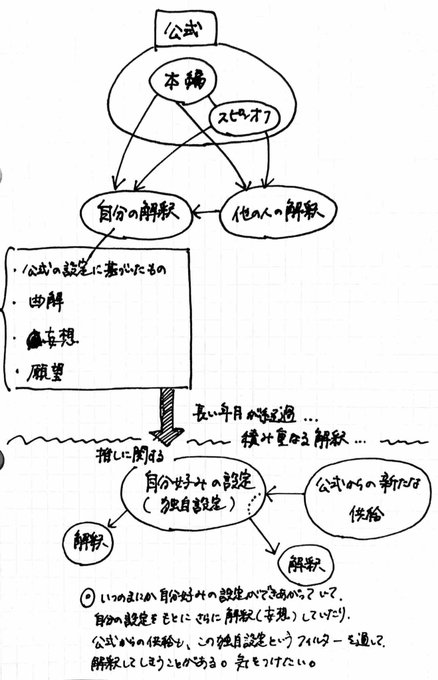 公式
本編
スピンオフ
自分の解釈
他の人の解釈
・公式の設定に基づいたもの
・曲解
・妄想
・願望
長い年月が経過…
積み重なる解釈…
推しに関する
自分好みの設定
(独自設定)
公式からの新たな
供給
解釈
解釈
◎いつのまにか自分好みの設定ができあがっていて、
自分の設定をもとにさらに解釈(妄想)していたり、
公式からの供給も、この独自設定というフィルターを通して
解釈してしまうことがある。気をつけたい。